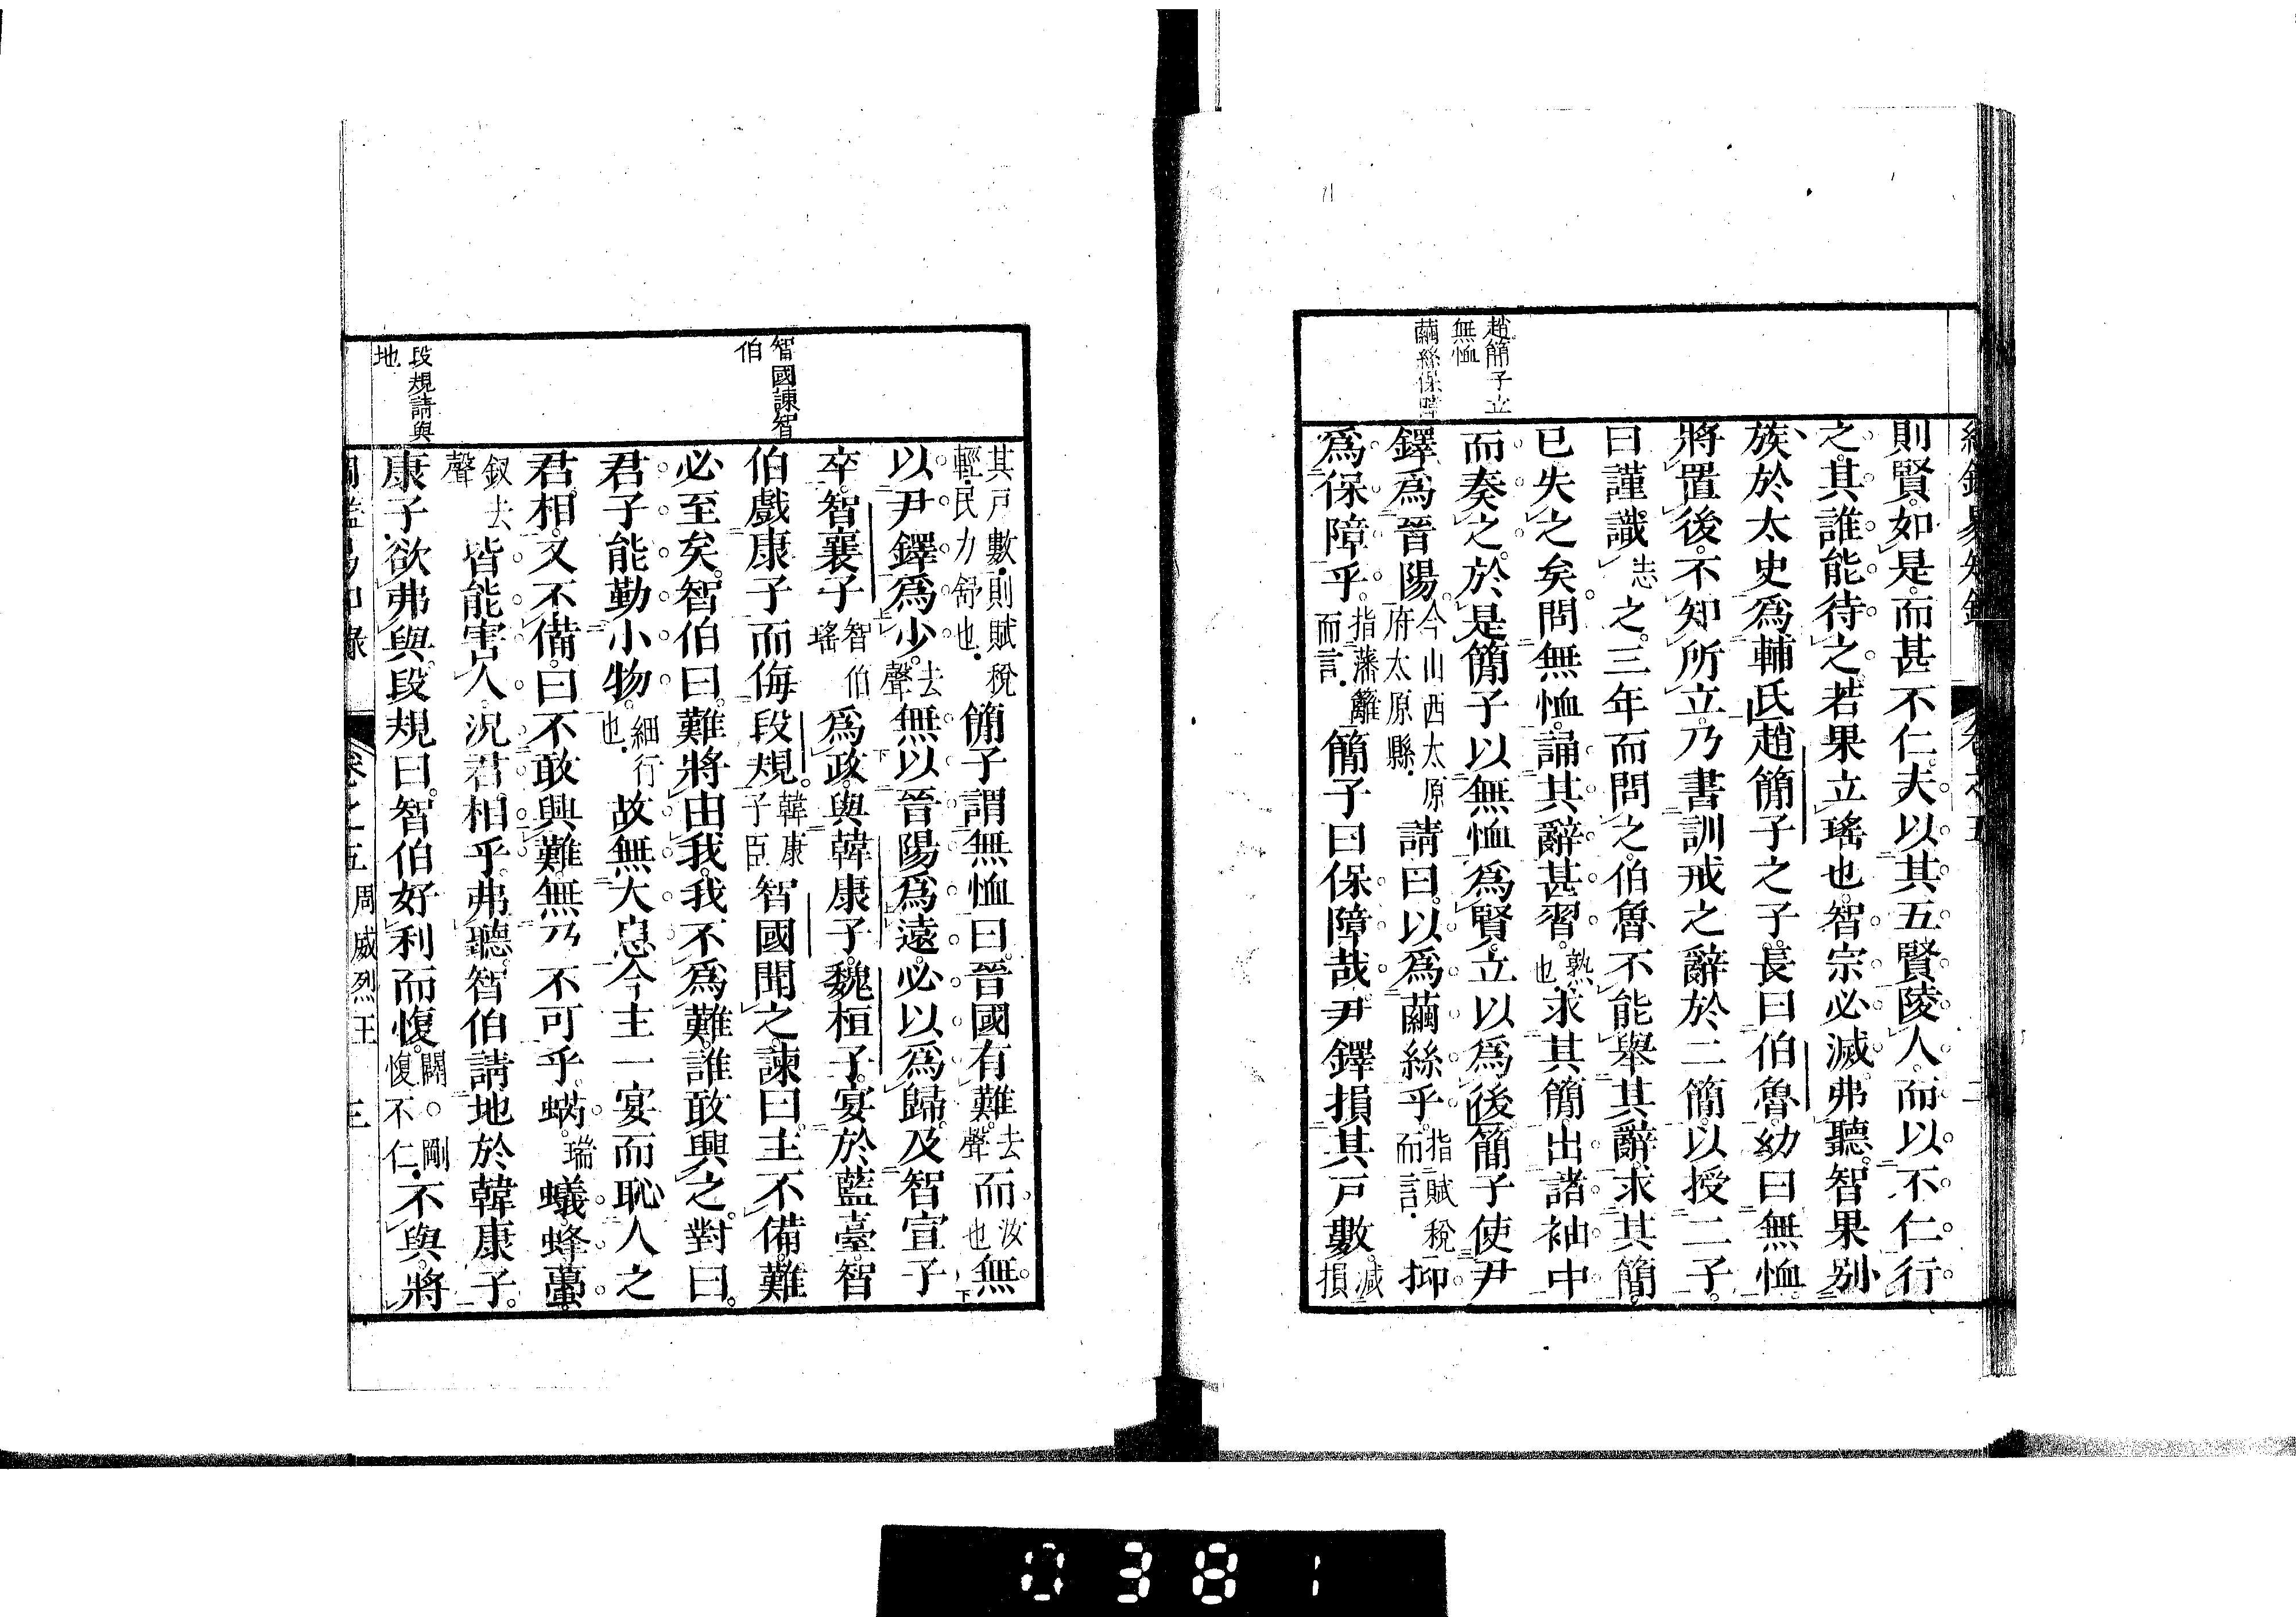 趙簡子立
無恤
繭絲保障
則賢。如是而甚不仁。夫以其五賢陵人。而以不仁行
之。其誰能待之。若果立瑤也。智宗必滅。弗聽。智果別
族於太史爲輔氏。趙簡子之子。長曰伯魯。幼曰無恤。
將置後。不知所立。乃書訓戒之辭於二簡。以授二子。
曰謹識志之。三年而問之。伯魯不能舉其辭。求其簡。
已失之矣。問無恤。誦其辭甚習。熟也。求其簡。出諸袖中
而奏之。於是簡子以無恤爲賢。立以爲後。簡子使尹
鐸爲晉陽。今山西太原府太原縣。請曰。以爲繭絲乎。指賦稅而言。抑
爲保障乎。指藩籬而言。簡子曰。保障哉。尹鐸損其戶數。減損
智國諫智
伯
段規請與
地
其戶數。則賦稅輕。民力舒也。簡子謂無恤曰。晉國有難。去聲而汝也無
以尹鐸爲少。去聲無以晉陽爲遠。必以爲歸。及智宣子
卒。智襄子智伯瑤爲政。與韓康子。魏桓子。宴於藍臺。智
伯戲康子而侮段規。韓康子臣智國聞之。諫曰。主不備。難
必至矣。智伯曰。難將由我。我不爲難。誰敢興之。對曰。
君子能勤小物。細行也。故無大息。今主一宴而恥人之
君相。又不備。曰不敢興難。無乃不可乎。蜹。瑞蟻。蜂蠆。
釵去聲皆能害人。況君相乎。弗聽。智伯請地於韓康子。
康子欲弗與。段規曰。智伯好利而愎。闢。○剛愎不仁。不與。將
卷之五 周威烈王 三
0381